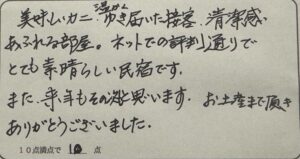 美味しいカニ、温かく行き届いた接客、清潔感
あふれる部屋。ネットでの評判通りで
とても素晴らしい民宿です。
また来年もその頃と思います。お土産まで頂き
ありがとうございました。
10点満点で 10 点